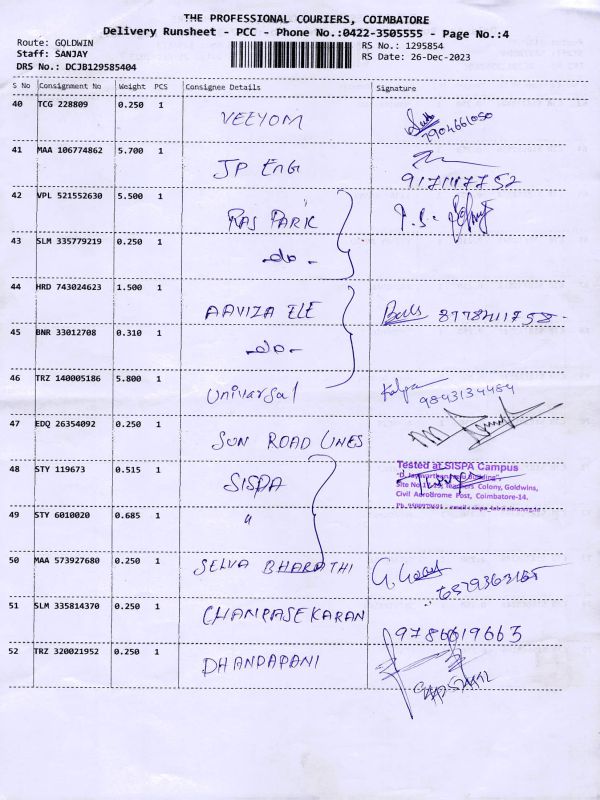 THE PROFESSIONAL COURIERS, COIMBATORE
Delivery Runsheet - PCC - Phone No.:0422-3505555 - Page No.:4
Route: GOLDWIN
RS No.: 1295854
Staff: SANJAY
RS Date: 26-Dec-2023
DRS No.: DCJB129585404
S No Consignment No Weight PCS Consignee Details Signature
40 TCG 228809 0.250 1 VEEYOM
7904661050
41 MAA 106774862 5.700 1 JP ENG
9171117752
42 VPL 521552630 5.500 1 RAJ PARK
43 SLM 335779219 0.250 1 -do-
44 HRD 743024623 1.500 1 AAVIZA ELE
45 BNR 33012708 0.310 1 -do-
46 TRZ 140005186 5.800 1 Univarsal
Kalpa
9843134484
47 EDQ 26354092 0.250 1 SUN ROAD LINES
48 STY 119673 0.515 1 SISPA
Tested at SISPA Campus
Colony, Goldwins,
Civil Aerodrome Post, Coimbatore-14.
49 STY 6010020 0.685 1 "
50 MAA 573927680 0.250 1 SELVA BHARATHI
51 SLM 335814370 0.250 1 CHANRASEKARAN
9786619663
52 TRZ 320021952 0.250 1 DHANDAPANI